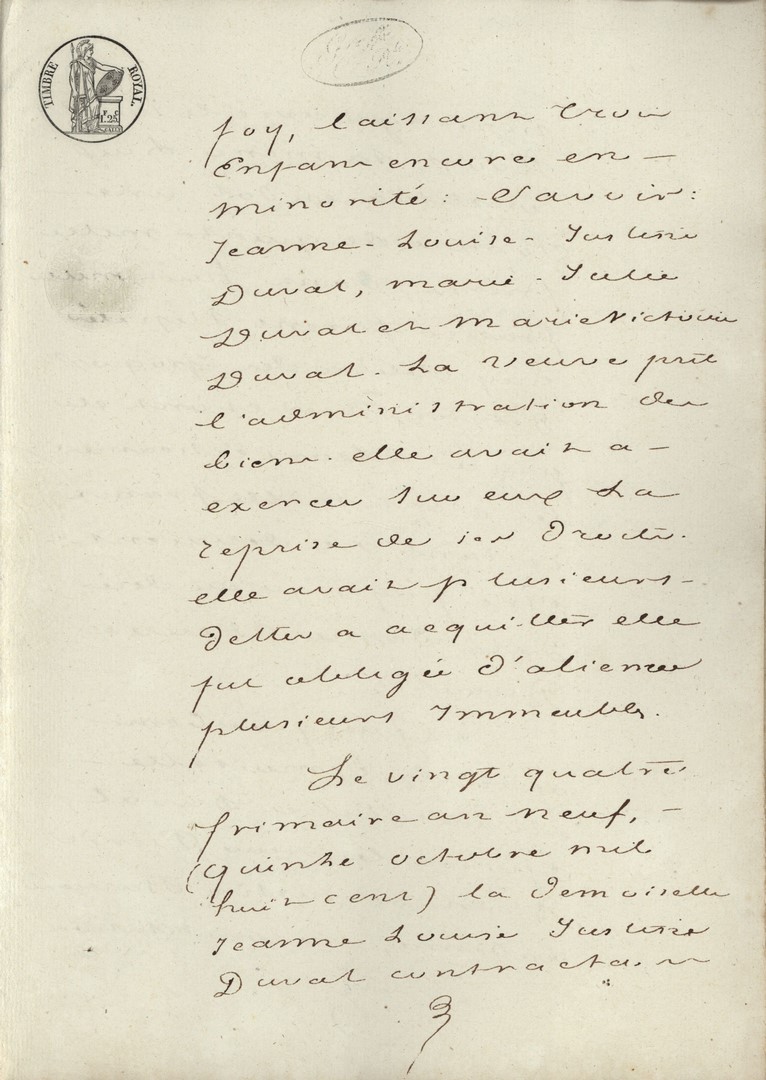 TIMBRE ROYAL.
1F. 25C.
foy, laissant trois
Enfans encore en –
minorité: – Savoir:
Jeanne – Louise – Justine
Duval, marie – Julie
Duval et Marie Victoire
Duval. La veuve prit
l'administration des
biens. elle avait a –
exercer sur eux La
reprise de ses Droits.
elle avait plusieurs –
Dettes a acquitter elle
fut obligée d'aliener
plusieurs Immeubles.
Le vingt quatre
frimaire an neuf, –
(quinze octobre mil
huit cent) la Demoiselle
Jeanne Louise Justine
Duval contracta un
3